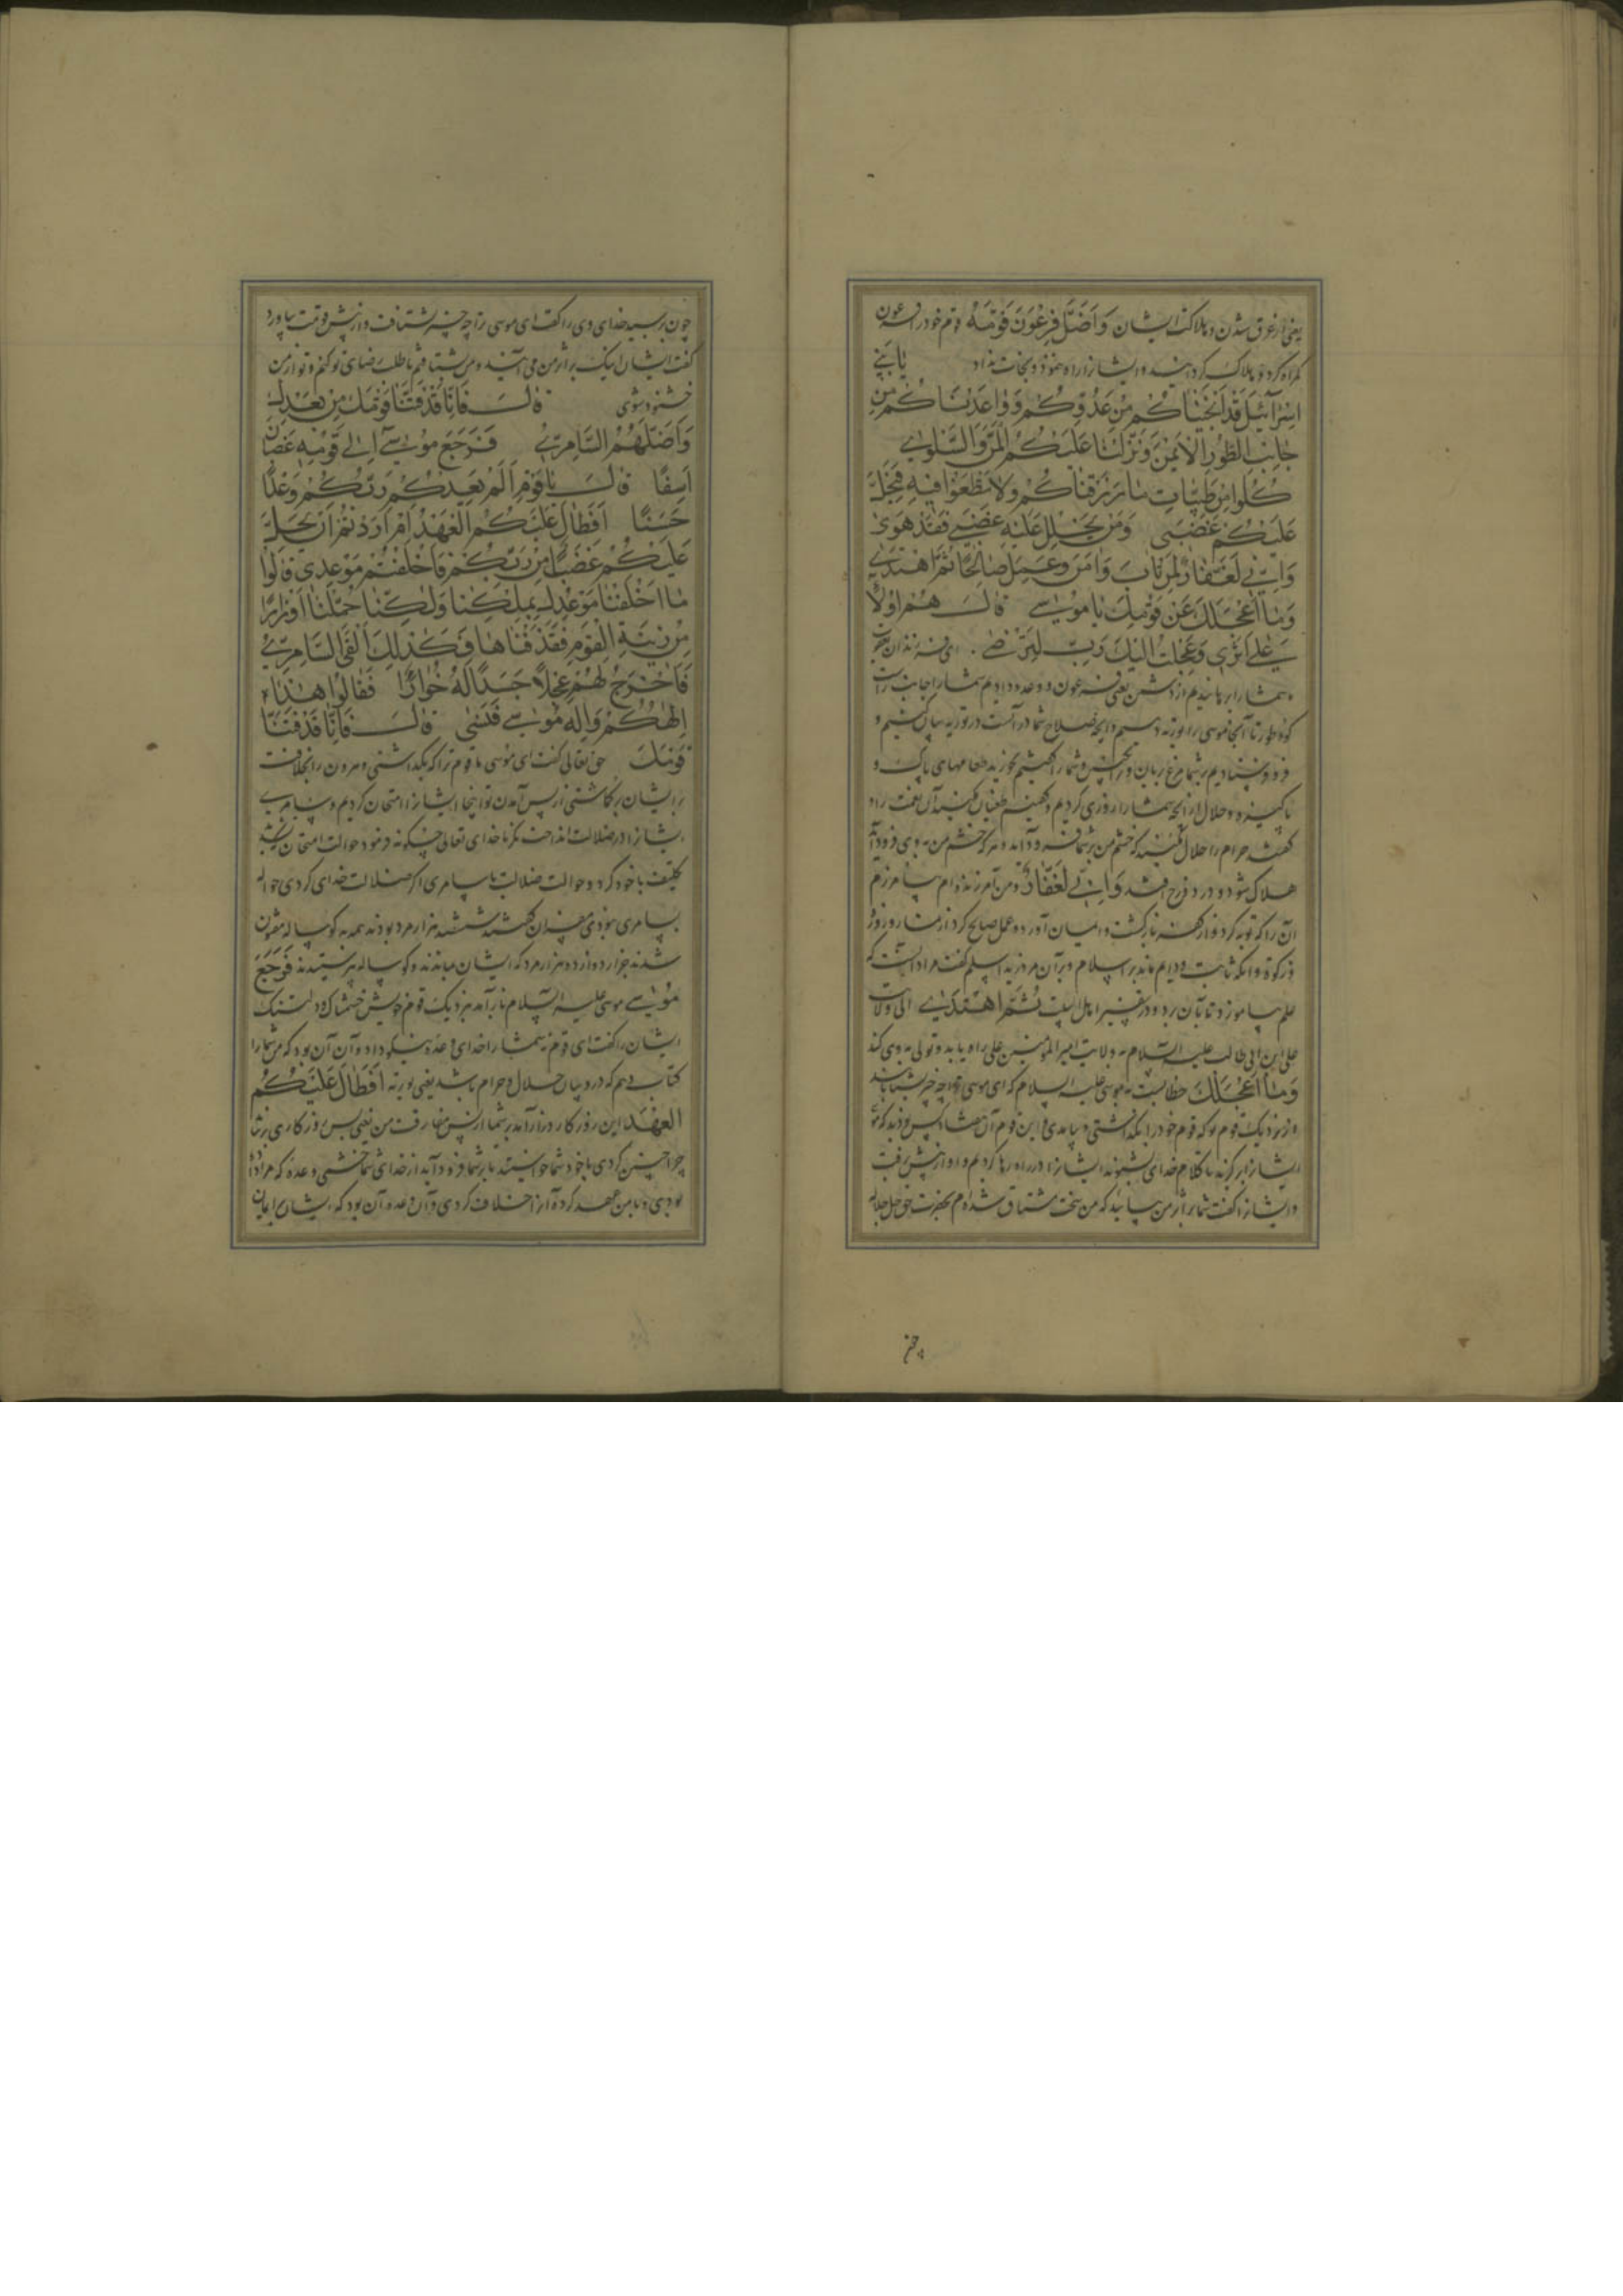 یعنی از غرق شدن و هلاکت ایشان وَاَضَلَّ فِرْعَوْنَ قَوْمَهُ قوم خود را فرعون
گمراه کرد و هلاک گردانید و ایشانرا راه ننمود و نجات نداد یا بَنِی
اِسْرَآئیلَ قَدْ اَنْجَیْنَاکُمْ مِنْ عَدُوِّکُمْ وَ وٰاعَدْنَاکُمْ مِنْ
جٰانِبَ الطُّورِ الْاَیْمَنَ وَنَزَّلْنٰا عَلَیْکُمُ الْمَنَّ وَالسَّلْویٰ
کُلُوا مِنْ طَیِّبٰاتِ مٰا رَزَقْنٰاکُمْ وَلاٰ تَطْغَوْا فیهِ فَیَحِلَّ
عَلَیْکُمْ غَضَبی وَمَنْ یَحْلِلْ عَلَیْهِ غَضَبی فَقَدْ هَوٰی
وَاِنّی لَغَفّٰارٌ لِمَنْ تٰابَ وَاٰمَنَ وَعَمِلَ صٰالِحًا ثُمَّ اهْتَدٰی
وَمٰا اَعْجَلَکَ عَنْ قَوْمِکَ یٰا مُوسٰی قٰالَ هُمْ اُولآءِ
عَلٰی اَثَری وَعَجِلْتُ اِلَیْکَ رَبِّ لِتَرْضٰی ای فرزندان یعقوب
ما شما را برهانیدیم از دشمن یعنی فرعون و وعده دادیم شما را جانب راست
کوه طور تا آنجا موسی را توریة دهیم و آنچه صلاح شما در آنست در توریه بیان کنیم و
فرو فرستادیم بر شما مرغ بریان و ترانگبین و شما را گفتیم بخورید طعامهای پاک و
پاکیزه و حلال از آنچه شما را روزی کردیم و گفتیم طغیان مکنید آن نعمت را و
هلاک شود و در دوزخ افتد وَاِنّی لَغَفّٰارٌ و من آمرزنده‌ام بیامرزم
آن را که توبه کرد و از کفر بازگشت و ایمان آورد و عمل صالح کرد از نماز و روزه
و زکوة و آنکه ثابت و دایم ماند بر اسلام و بر آن مرد زید اسلم گفت مراد آنست که
علم بیاموزد تا بآن رود و در تفسیر اهل البیت ثُمَّ اهْتَدٰی الی ولایت
علی ابن ابی طالب علیه السلام به ولایت امیر المؤمنین علی راه یابد و تولی به وی کند
وَمٰا اَعْجَلَکَ خطابست به موسی علیه السلام که ای موسی ترا چه چیز بشتابانید
و از نزدیک قوم خود را بگذاشتی و بیامدی و این قوم آن هفتاد کس بودند که موسی
ایشانرا برگزید تا کلام خدای بشنوند ایشانرا در راه رها کردیم و او از پیش برفت
و ایشانرا گفت شما بر اثر من بیائید که من سخت مشتاق شده‌ام بحضرت حق جل جلاله
چون
چون برسید خدای وی را گفت ای موسی ترا چه چیز بشتافت و از پیش قومت بیاورد
گفت ایشان اینک بر اثر من می‌آیند و من بشتافتم تا طلب رضای تو کنم و تو از من
خشنود شوی قٰالَ فَاِنّٰا قَدْ فَتَنّٰا قَوْمَکَ مِنْ بَعْدِکَ
وَاَضَلَّهُمُ السّٰامِرِیُّ فَرَجَعَ مُوسٰی اِلٰی قَوْمِهِ غَضْبٰانَ
اَسِفًا قٰالَ یٰا قَوْمِ اَلَمْ یَعِدْکُمْ رَبُّکُمْ وَعْدًا
حَسَنًا اَفَطٰالَ عَلَیْکُمُ الْعَهْدُ اَمْ اَرَدْتُمْ اَنْ یَحِلَّ
عَلَیْکُمْ غَضَبٌ مِنْ رَبِّکُمْ فَاَخْلَفْتُمْ مَوْعِدی قٰالُوا
مٰا اَخْلَفْنٰا مَوْعِدَکَ بِمَلْکِنٰا وَلٰکِنّٰا حُمِّلْنٰا اَوْزٰارًا
مِنْ زینَةِ الْقَوْمِ فَقَذَفْنٰاهٰا فَکَذٰلِکَ اَلْقَی السّٰامِرِیُّ
فَاَخْرَجَ لَهُمْ عِجْلاً جَسَدًا لَهُ خُوٰارٌ فَقٰالُوا هٰذٰا
اِلٰهُکُمْ وَاِلٰهُ مُوسٰی فَنَسِیَ قٰالَ فَاِنّٰا قَدْ فَتَنّٰا
قَوْمَکَ حق تعالی گفت ای موسی ما قوم ترا که بگذاشتی و هرون را بخلافت
بر ایشان بگماشتی از پس آمدن تو اینجا ایشانرا امتحان کردیم و سامری
ایشانرا در ضلالت انداخت نگر تا خدای تعالی چگونه فرمود حوالت امتحان
تکلیف با خود کرد و حوالت ضلالت با سامری اگر ضلالت خدای کردی حواله
بسامری نبودی مفسران گفتند ششصد هزار مرد بودند همه به گوساله مفتون
شدند جز از دوازده هزار مرد که ایشان بماندند و گوساله نپرستیدند فَرَجَعَ
مُوسٰی موسی علیه السلام باز آمد بنزدیک قوم خویش خشمناک و دلتنگ
ایشان را گفت ای قوم نه شما را خدای وعده نیکو داد و آن آن بود که من شما را
کتاب دهم که در و بیان حلال و حرام باشد یعنی توریة اَفَطٰالَ عَلَیْکُمُ
الْعَهْدُ این روزگار دراز آمد بر شما از پس مفارقت من یعنی بس روزگاری
چرا چنین کردی یا خود شما خواستید تا بر شما فرود آید از خدای شما خشمی و وعده که مرا داده
بودی و با من عهد کرده آنرا خلاف کردی و آن وعده آن بود که ایشان